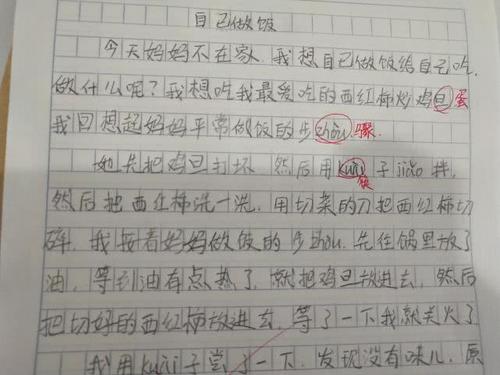 自己做饭
今天妈妈不在家.我想自己做饭给自己吃.
做什么呢?我想吃我最爱吃的西红柿炒鸡旦蛋
我回想起妈妈平常做饭的步zhòu.骤.
她先把鸡旦打坏 然后用kuài子jiǎo拌,
筷
然后把西红柿洗一洗.用切菜的刀把西红柿切
碎,我接着妈妈做饭的步zhòu.先往锅里放了
油,等到油有点热了,就把鸡旦放进去,然后
把切好的西红柿放进去,等了一下我就关火了
我用kuài子尝了一下,发现没有味儿,原